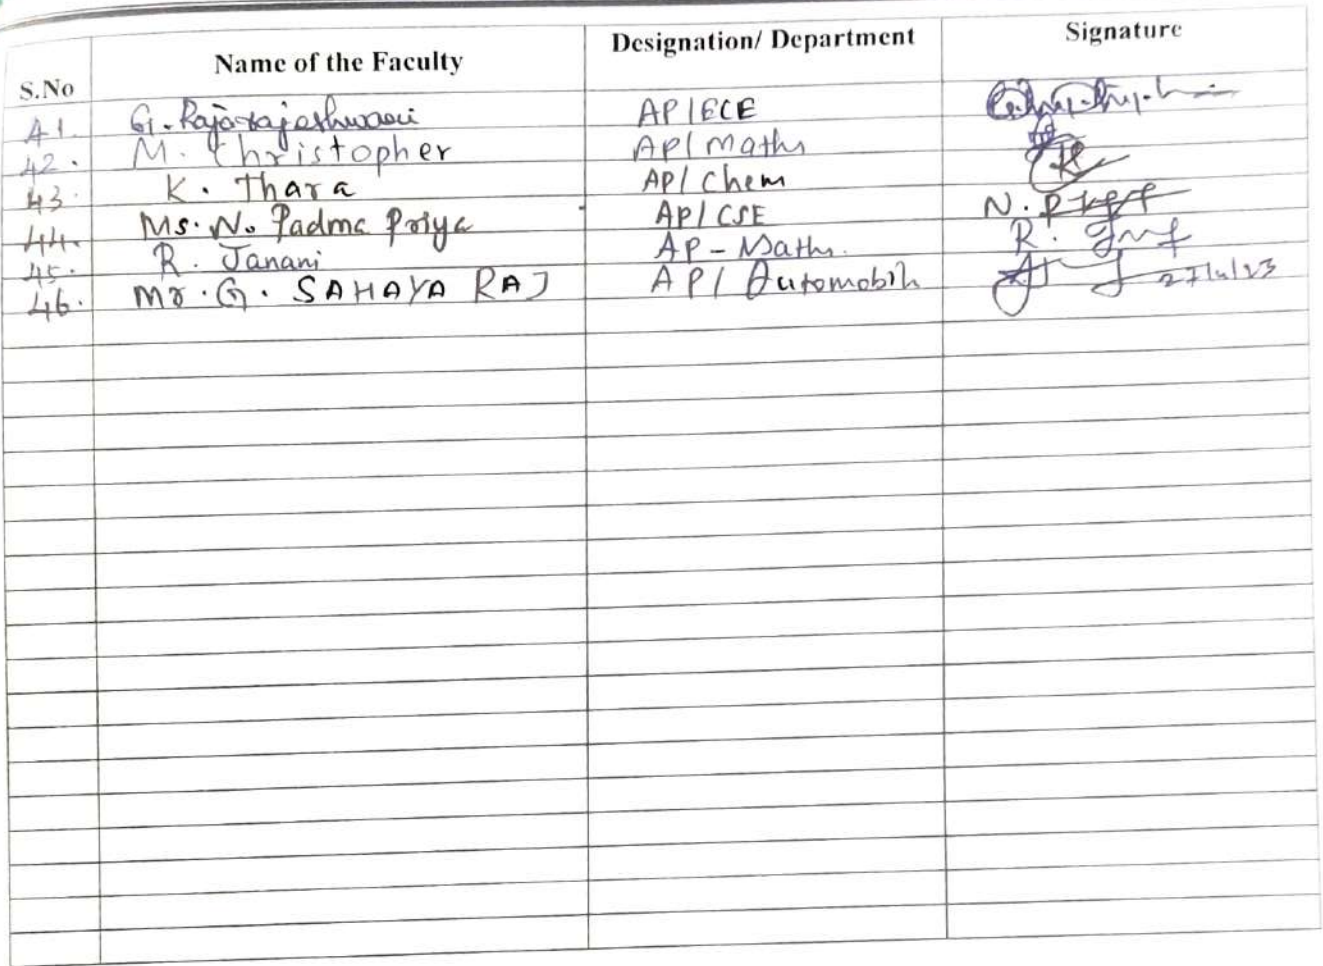 S.No Name of the Faculty Designation/ Department Signature
41. G. Rajarajeshwari AP/ECE
42. M. Christopher AP/Maths
43. K. Thara AP/ Chem
44. Ms. N. Padma Priya AP/CSE N.
45. R. Janani AP-Maths. R.
46. Mr. G. SAHAYA RAJ AP/